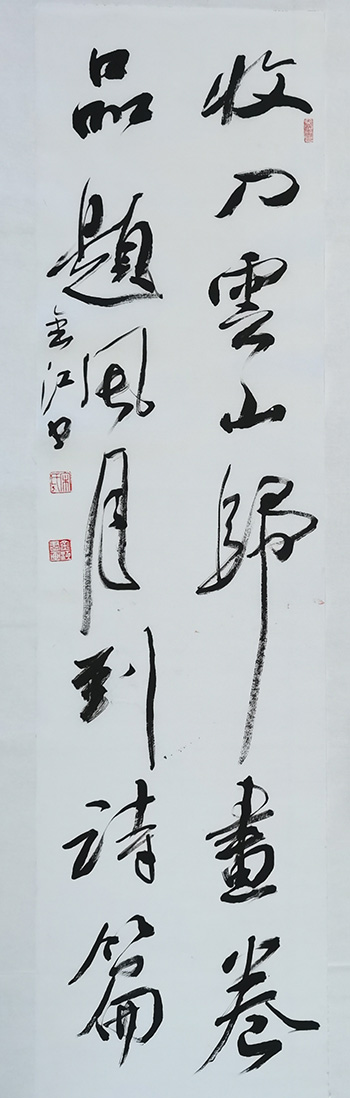 收乃雲山歸畫卷
品題風月到詩篇
金江书